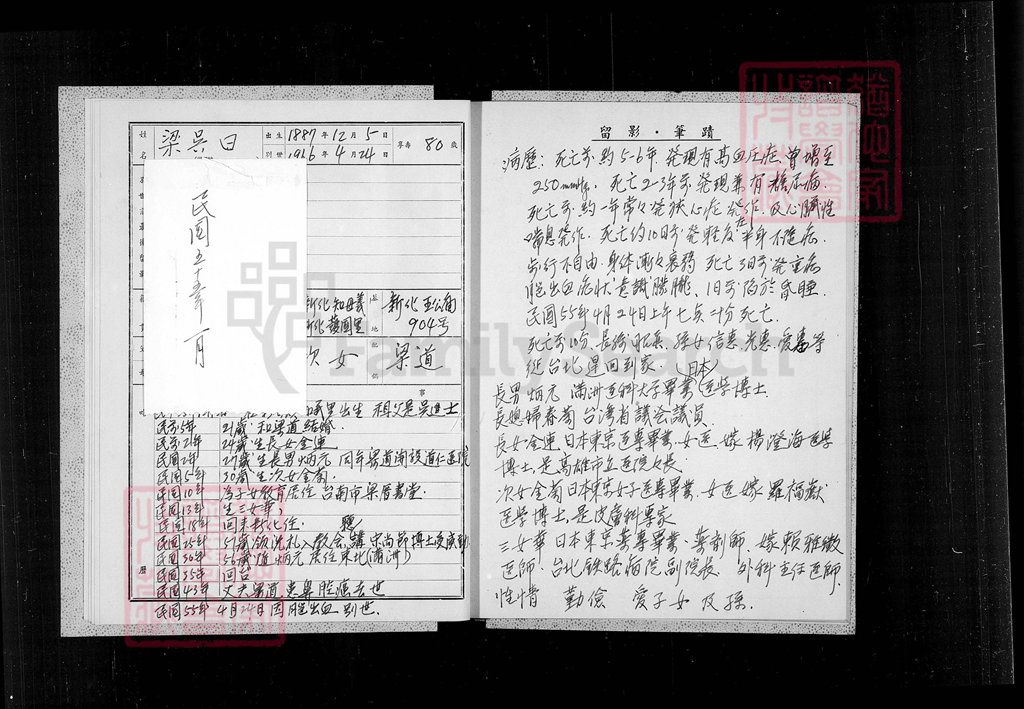 姓名
梁吳日
出生 1887年12月5日
別世 1966年4月24日
享壽 80歲
民國五十年一月
新化知母義
新化 護國里
居地
新化 王公廟
904号
次女
配偶
梁道
里出生 祖父是吳進士
民前5年 21歲 和梁道結婚.
民前2年 24歲 生長女金連
民國2年 27歲 生長男炳元 同年梁道開設道仁医院
民國5年 30歲 生次女金菊
民國10年 為子女教育居住台南市梁厝書堂.
民國13年 生三女華
民國18年 回來新化住.
民國25年 51歲領洗礼入教会
民國30年 56歲 隨炳元居住東北(滿洲)
民國35年 回台
民國43年 丈夫梁道患鼻腔癌去世
民國55年 4月24日因脳出血 別世.
歷
留影·筆蹟
病歷: 死亡前約5-6年 発現有高血圧症、曾增至
250mmHg. 死亡2-3年前 発現兼有糖尿病.
死亡前約一年常々発狹心症発作. 及心臟性
喘息発作. 死亡約10日前発輕度左半身不隨症.
步行不自由. 身体漸々衰弱 死亡3日前発重病
脳出血症狀 意識朦朧. 1日前陷於昏睡.
民國55年4月24日上午七点二十分死亡.
死亡前 孫女信惠 光惠 愛
從台北趕回到家.
長男 炳元 滿洲医科大学畢業 (日本)医学博士.
長媳婦春菊 台湾省議会議員
長女金連 日本東京医專畢業. 女医. 嫁 楊澄海医学
博士. 是高雄市立医院々長.
次女金菊 日本東京女子医專畢業. 女医 嫁 羅福嶽
医学博士. 是皮膚科專家
三女華 日本東京薬專畢業. 薬剤師. 嫁 賴雅徵
医師. 台北鉄路病院副院長. 外科主任医師
性情 勤儉 愛子女及孫.
FamilySearch